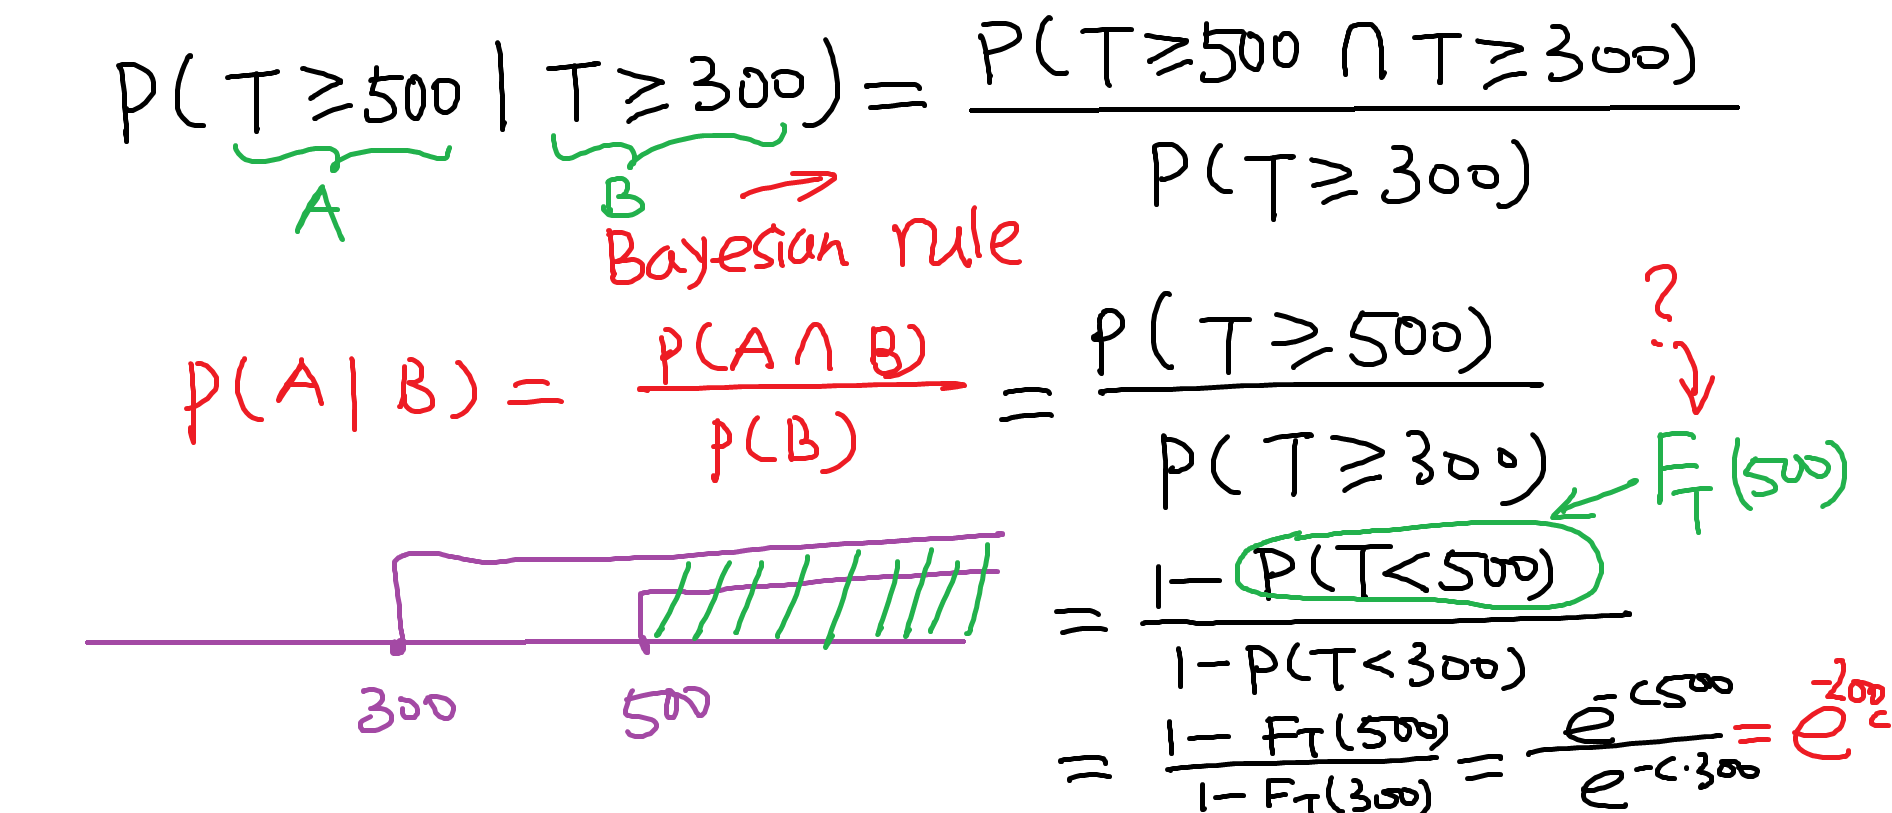 P(T≥500 | T≥300) = P(T≥500 ∩ T≥300) / P(T≥300)
A B
Bayesian rule
P(A|B) = P(A∩B) / P(B)
= P(T≥500) / P(T≥300)
?
F_T(500)
= 1-P(T<500) / 1-P(T<300)
300 500
= 1-F_T(500) / 1-F_T(300) = e^{-c500} / e^{-c·300} = e^{-200c}